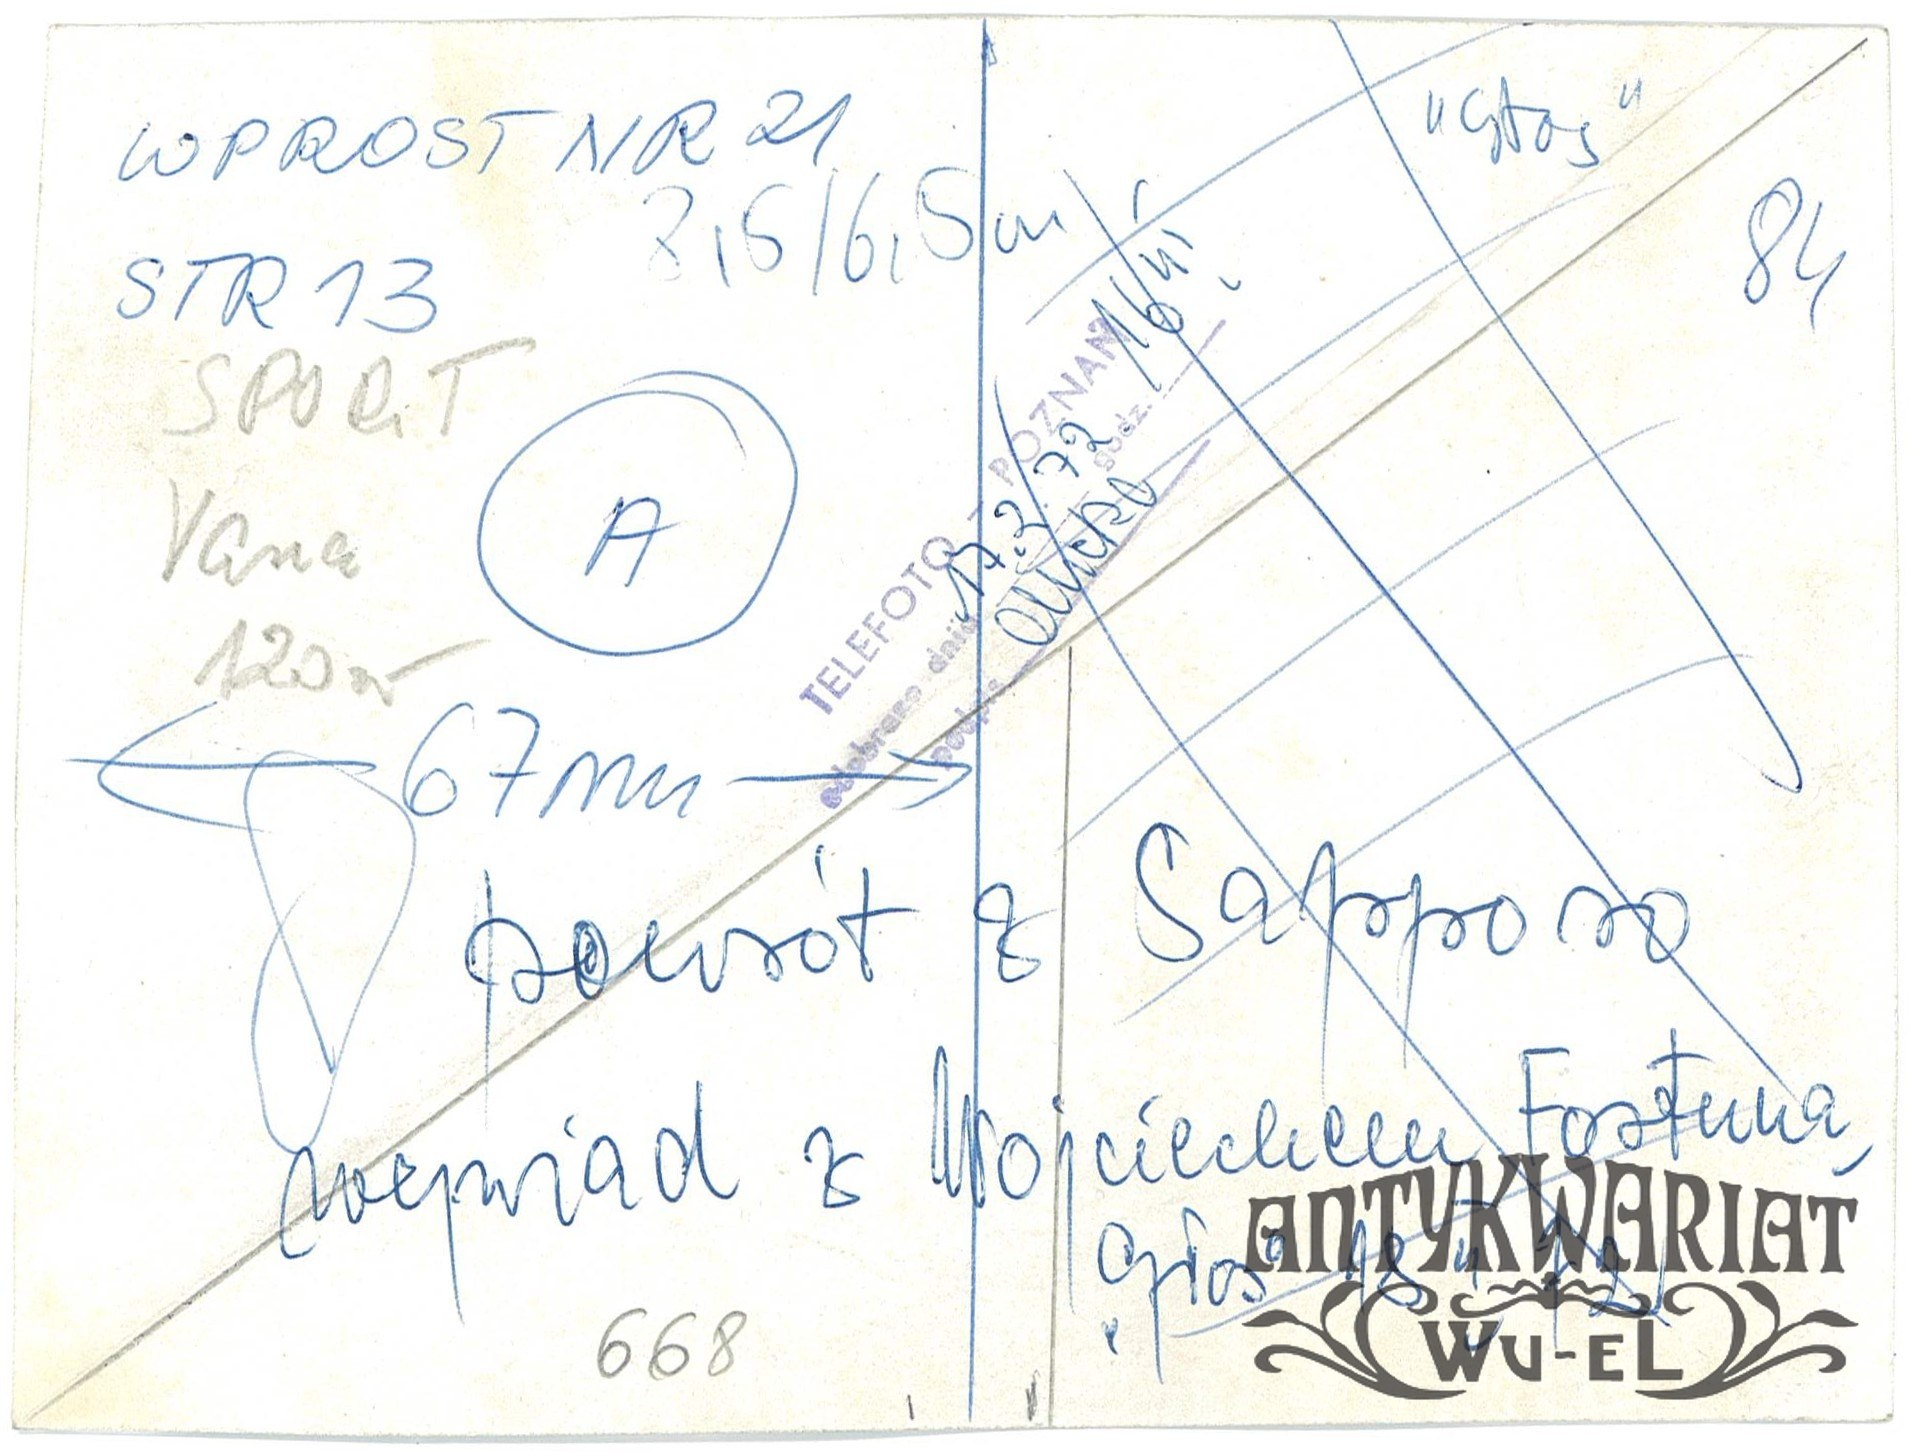 WPROST NR 21
8,5/6,5 cm
STR 13
SPORT
120
A
"Głos"
84
16
TELEFOTO - POZNAŃ
odebrano dnia 17.2.72 godz.
podpis
67 mm
powrót z Sapporo
wywiad z Wojciechem Fortuną
"Głos" 18 72
668
ANTYKWARIAT
WU-EL